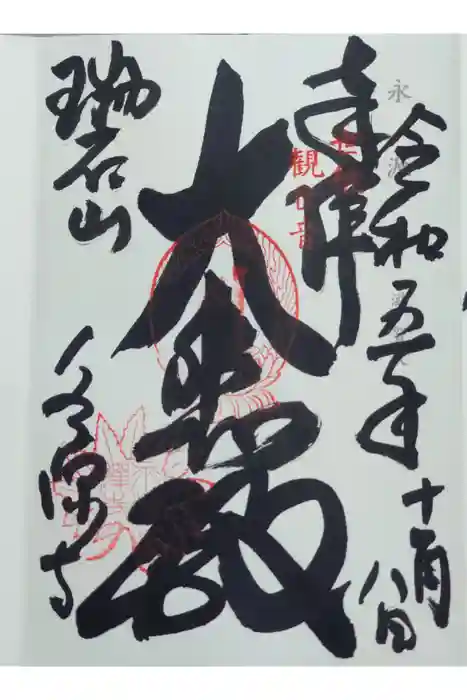 令和五年
十一月八日
奉拝
大悲殿
瑞石山
永源寺